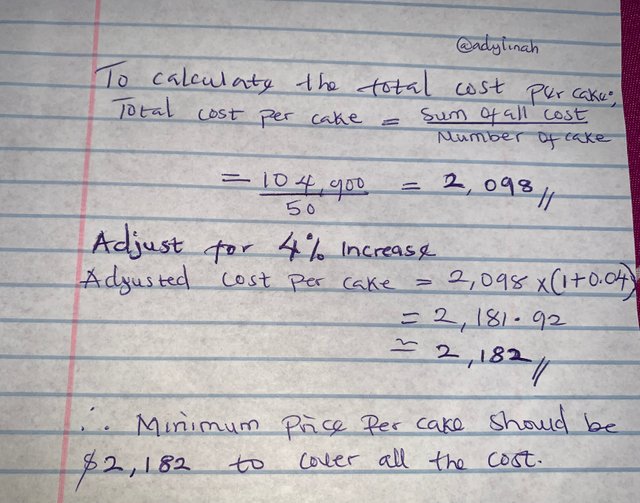 @adylinah
To calculate the total cost per cake;
Total cost per cake = Sum of all cost
Number of cake
= 104,900 = 2,098//
50
Adjust for 4% Increase
Adjusted cost per cake = 2,098 x(1+0.04)
= 2,181.92
≃ 2,182//
∴ Minimum Price Per cake should be
$2,182 to cover all the cost.